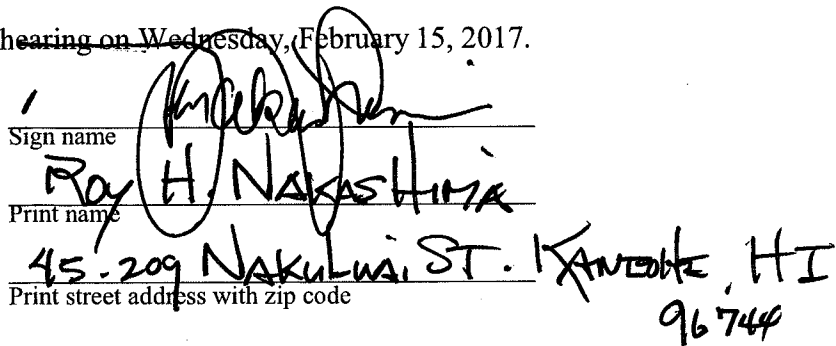 hearing on Wednesday, February 15, 2017.
Sign name
Roy H. NAKASHIMA
Print name
45-209 NAKULUAI ST. KANEOHE, HI
Print street address with zip code
96744